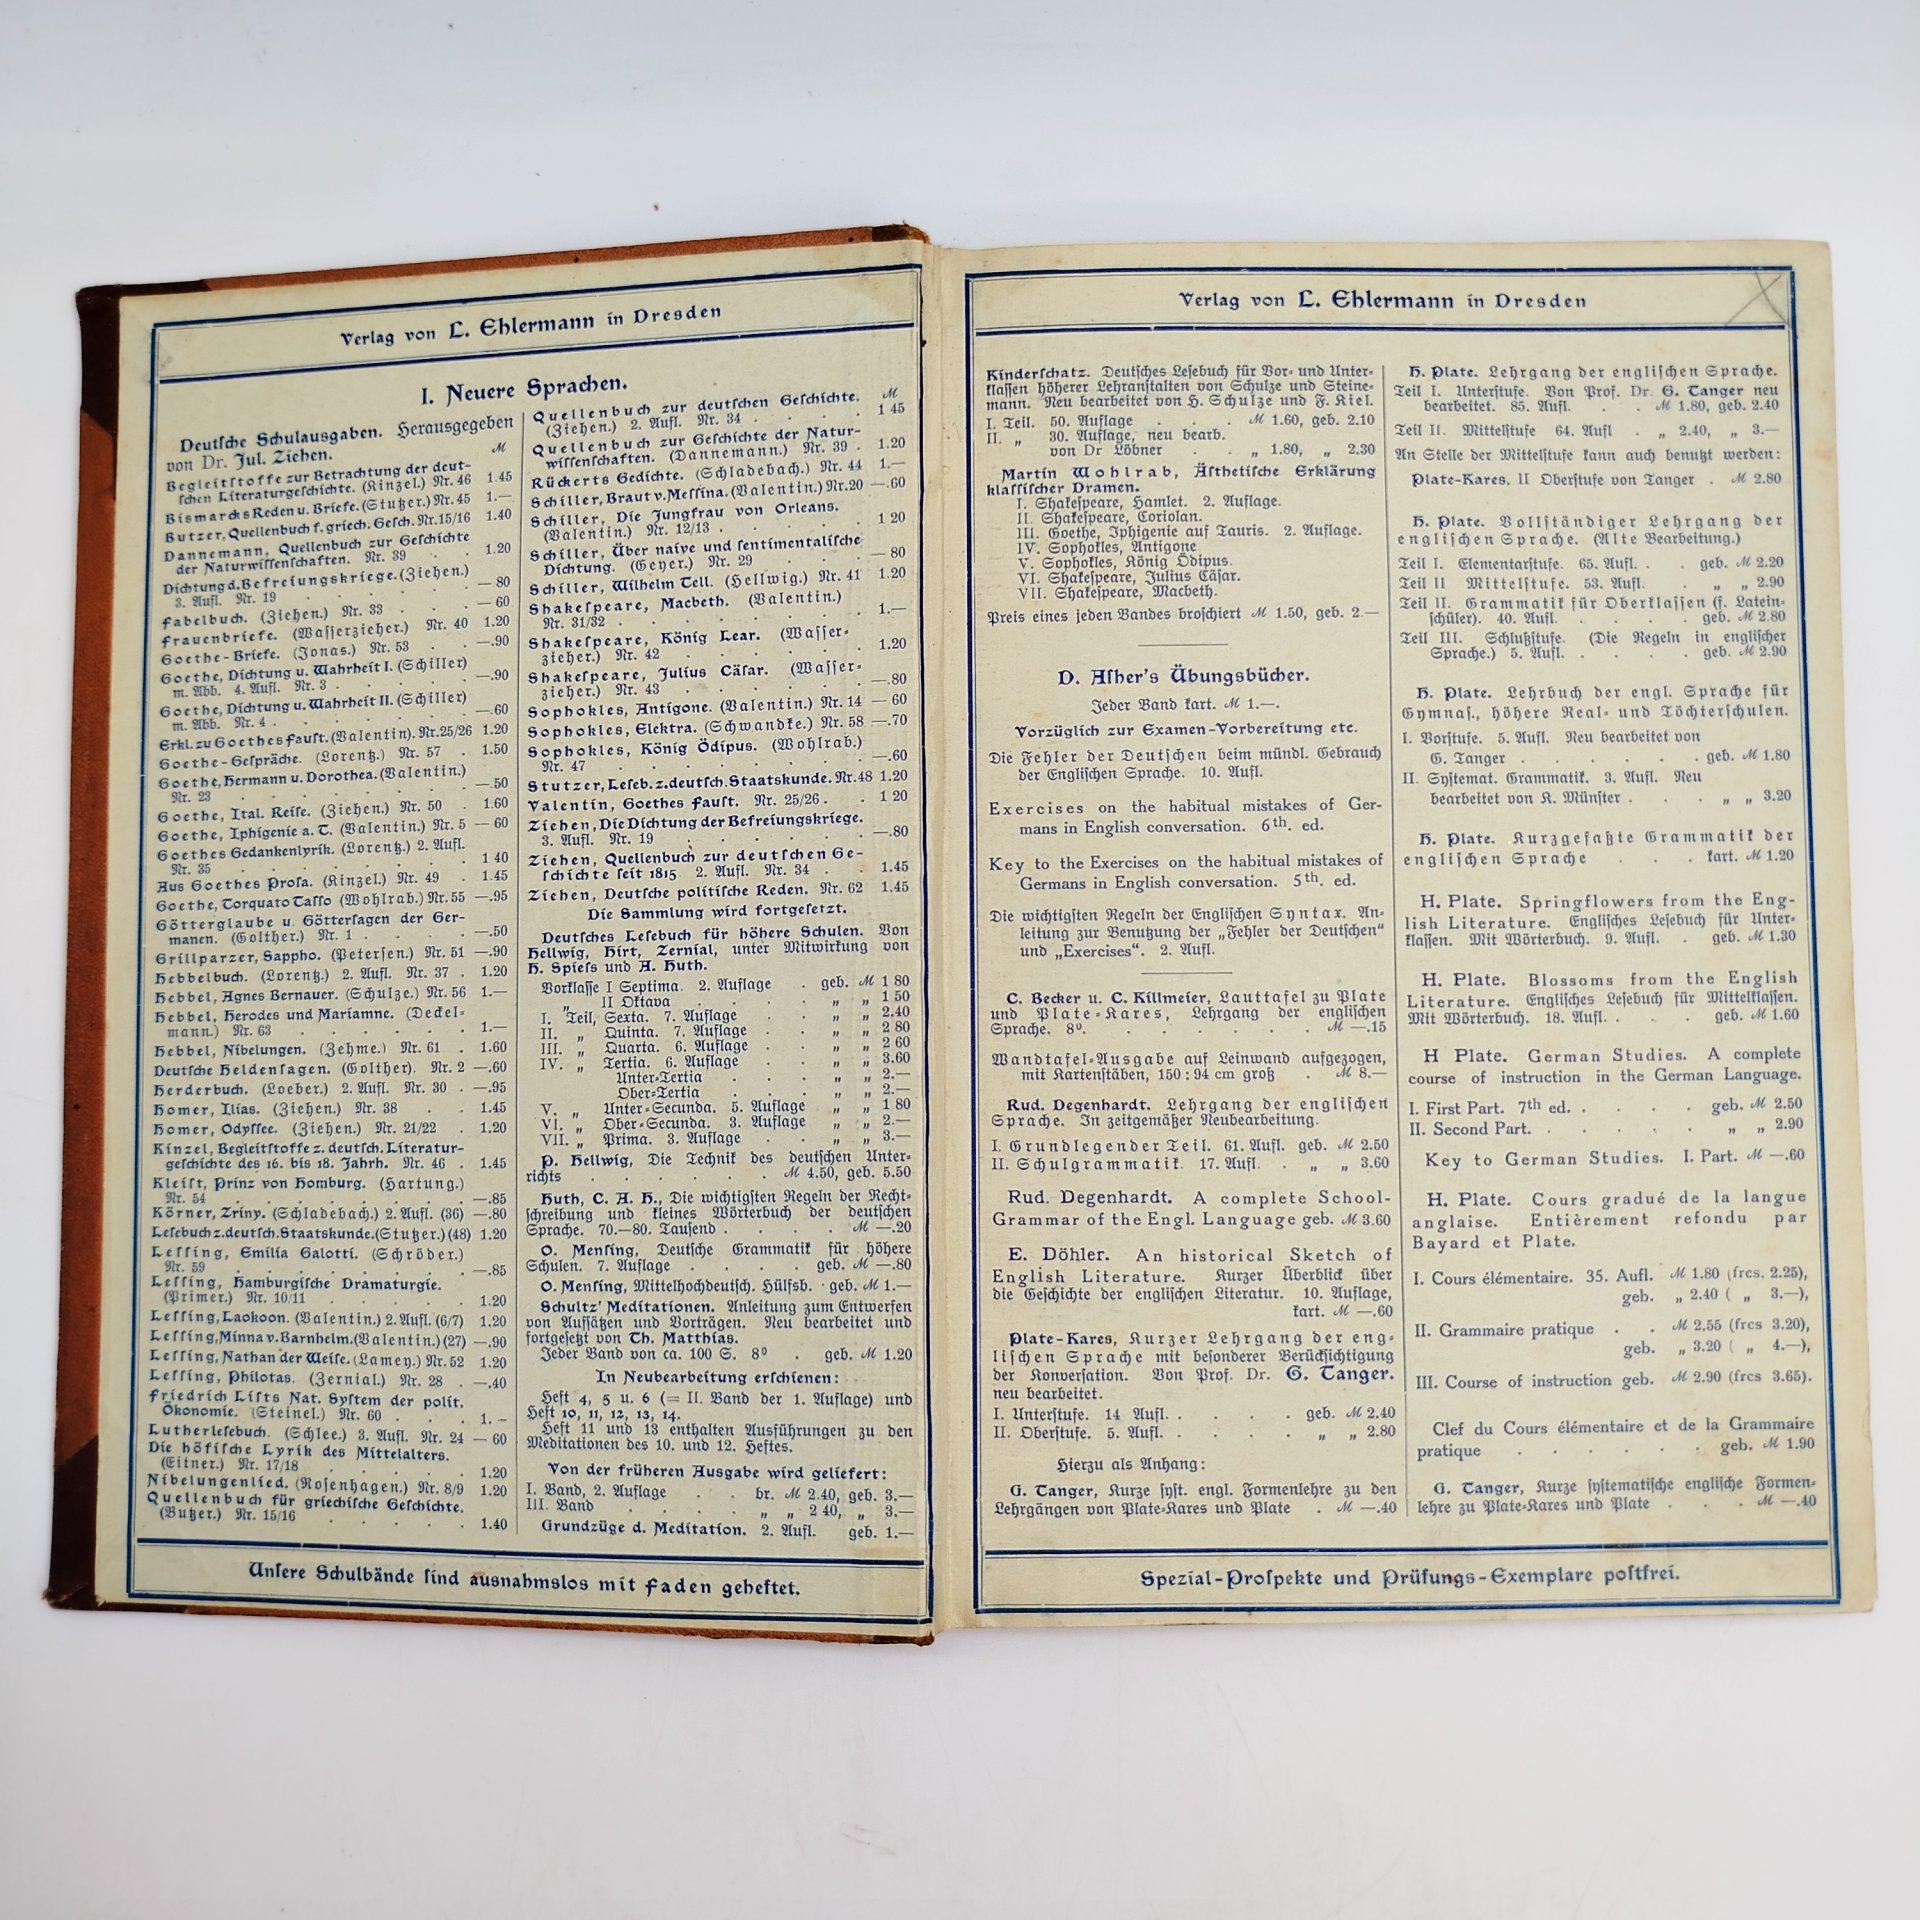 Verlag von L. Ehlermann in Dresden
I. Neuere Sprachen.
Deutsche Schulausgaben. Herausgegeben
von Dr. Jul. Ziehen. M
Begleitstoffe zur Betrachtung der deut-
schen Literaturgeschichte. (Kinzel.) Nr. 46 1.45
Bismarcks Reden u. Briefe. (Stutzer.) Nr. 45 1.—
Butzer, Quellenbuch f. griech. Gesch. Nr. 15/16 1.40
Dannemann, Quellenbuch zur Geschichte
der Naturwissenschaften. Nr. 39 . . 1.20
Dichtung d. Befreiungskriege. (Ziehen.)
3. Aufl. Nr. 19 . . . . . —80
Fabelbuch. (Ziehen.) Nr. 33 . . . —60
Frauenbriefe. (Wasserzieher.) Nr. 40 1.20
Goethe-Briefe. (Jonas.) Nr. 53 . . —.90
Goethe, Dichtung u. Wahrheit I. (Schiller)
m. Abb. 4. Aufl. Nr. 3 . . . . —.90
Goethe, Dichtung u. Wahrheit II. (Schiller)
m. Abb. Nr. 4 . . . . . . —.60
Erkl. zu Goethes Faust. (Valentin). Nr. 25/26 1.20
Goethe-Gespräche. (Lorentz.) Nr. 57 . 1.50
Goethe, Hermann u. Dorothea. (Valentin.)
Nr. 23 . . . . . . —.50
Goethe, Ital. Reise. (Ziehen.) Nr. 50 . 1.60
Goethe, Iphigenie a. T. (Valentin.) Nr. 5 —60
Goethes Gedankenlyrik. (Lorentz.) 2. Aufl.
Nr. 35 . . . . . . 1 40
Aus Goethes Prosa. (Kinzel.) Nr. 49 . 1.45
Goethe, Torquato Tasso (Wohlrab.) Nr. 55 —.95
Götterglaube u. Göttersagen der Ger-
manen. (Golther.) Nr. 1 . . . . —.50
Grillparzer, Sappho. (Petersen.) Nr. 51 —.90
Hebbelbuch. (Lorentz.) 2. Aufl. Nr. 37 . 1.20
Hebbel, Agnes Bernauer. (Schulze.) Nr. 56 1.—
Hebbel, Herodes und Mariamne. (Deckel-
mann.) Nr. 63 . . . . . . 1.—
Hebbel, Nibelungen. (Zehme.) Nr. 61 . 1.60
Deutsche Heldensagen. (Golther). Nr. 2 —.60
Herderbuch. (Loeber.) 2. Aufl. Nr. 30 . —.95
Homer, Ilias. (Ziehen.) Nr. 38 . . 1.45
Homer, Odyssee. (Ziehen.) Nr. 21/22 . 1.20
Kinzel, Begleitstoffe z. deutsch. Literatur-
geschichte des 16. bis 18. Jahrh. Nr. 46 . 1.45
Kleist, Prinz von Homburg. (Hartung.)
Nr. 54 . . . . . . —.85
Körner, Zriny. (Schladebach.) 2. Aufl. (36) —.80
Lesebuch z. deutsch. Staatskunde. (Stutzer.) (48) 1.20
Lessing, Emilia Galotti. (Schröder.)
Nr. 59 . . . . . . —.85
Lessing, Hamburgische Dramaturgie.
(Primer.) Nr. 10/11 . . . . 1.20
Lessing, Laokoon. (Valentin.) 2. Aufl. (6/7) 1.20
Lessing, Minna v. Barnhelm. (Valentin.) (27) —.90
Lessing, Nathan der Weise. (Lamey.) Nr. 52 1.20
Lessing, Philotas. (Zernial.) Nr. 28 . —.40
Friedrich Lists Nat. System der polit.
Ökonomie. (Steinel.) Nr. 60 . . . 1. –
Lutherlesebuch. (Schlee.) 3. Aufl. Nr. 24 — 60
Die höfische Lyrik des Mittelalters.
(Eitner.) Nr. 17/18 . . . . . 1.20
Nibelungenlied. (Rosenhagen.) Nr. 8/9 1.20
Quellenbuch für griechische Geschichte.
(Butzer.) Nr. 15/16 . . . . . 1.40
Quellenbuch zur deutschen Geschichte. M
(Ziehen.) 2. Aufl. Nr. 34 . . . . 1 45
Quellenbuch zur Geschichte der Natur-
wissenschaften. (Dannemann.) Nr. 39 . 1.20
Rückerts Gedichte. (Schladebach.) Nr. 44 1.—
Schiller, Braut v. Messina. (Valentin.) Nr. 20 —.60
Schiller, Die Jungfrau von Orleans.
(Valentin.) Nr. 12/13 . . . . . 1 20
Schiller, Über naive und sentimentalische
Dichtung. (Geyer.) Nr. 29 . . . — 80
Schiller, Wilhelm Tell. (Hellwig.) Nr. 41 1.20
Shakespeare, Macbeth. (Valentin.)
Nr. 31/32 . . . . . . 1.—
Shakespeare, König Lear. (Wasser-
zieher.) Nr. 42 . . . . . 1.20
Shakespeare, Julius Cäsar. (Wasser-
zieher.) Nr. 43 . . . . . —.80
Sophokles, Antigone. (Valentin.) Nr. 14 — 60
Sophokles, Elektra. (Schwandke.) Nr. 58 —.70
Sophokles, König Ödipus. (Wohlrab.)
Nr. 47 . . . . . . —.60
Stutzer, Leseb. z. deutsch. Staatskunde. Nr. 48 1.20
Valentin, Goethes Faust. Nr. 25/26 . . 1 20
Ziehen, Die Dichtung der Befreiungskriege.
3. Aufl. Nr. 19 . . . . . —.80
Ziehen, Quellenbuch zur deutschen Ge-
schichte seit 1815 2. Aufl. Nr. 34 . . 1.45
Ziehen, Deutsche politische Reden. Nr. 62 1.45
Die Sammlung wird fortgesetzt.
Deutsches Lesebuch für höhere Schulen. Von
Hellwig, Hirt, Zernial, unter Mitwirkung von
H. Spiess und A. Huth.
Vorklasse I Septima. 2. Auflage . geb. M 1 80
„ II Oktava . . . . „ „ 1 50
I. Teil, Sexta. 7. Auflage . . „ „ 2.40
II. „ Quinta. 7. Auflage . . „ „ 2 80
III. „ Quarta. 6. Auflage . . „ „ 2 60
IV. „ Tertia. 6. Auflage . . „ „ 3.60
Unter-Tertia . . . „ „ 2.—
Ober-Tertia . . . „ „ 2.—
V. „ Unter-Secunda. 5. Auflage „ „ 1 80
VI. „ Ober-Secunda. 3. Auflage „ „ 2.—
VII. „ Prima. 3. Auflage . . „ „ 3.—
P. Hellwig, Die Technik des deutschen Unter-
richts . . . . . M 4.50, geb. 5.50
Huth, C. A. H., Die wichtigsten Regeln der Recht-
schreibung und kleines Wörterbuch der deutschen
Sprache. 70.—80. Tausend . . . . M —.20
O. Mensing, Deutsche Grammatik für höhere
Schulen. 7. Auflage . . . . geb. M —.80
O. Mensing, Mittelhochdeutsch. Hülfsb. . geb. M 1.—
Schultz' Meditationen. Anleitung zum Entwerfen
von Aufsätzen und Vorträgen. Neu bearbeitet und
fortgesetzt von Th. Matthias.
Jeder Band von ca. 100 S. 8⁰ . geb. M 1.20
In Neubearbeitung erschienen:
Heft 4, 5 u. 6 (= II. Band der 1. Auflage) und
Heft 10, 11, 12, 13, 14.
Heft 11 und 13 enthalten Ausführungen zu den
Meditationen des 10. und 12. Heftes.
Von der früheren Ausgabe wird geliefert:
I. Band, 2. Auflage . . br. M 2.40, geb. 3.—
III. Band . . . . „ „ 2 40, „ 3.—
Grundzüge d. Meditation. 2. Aufl. geb. 1.—
Unsere Schulbände sind ausnahmslos mit Faden geheftet.
Verlag von L. Ehlermann in Dresden
Kinderschatz. Deutsches Lesebuch für Vor- und Unter-
klassen höherer Lehranstalten von Schulze und Steine-
mann. Neu bearbeitet von H. Schulze und F. Kiel.
I. Teil. 50. Auflage . . . M 1.60, geb. 2.10
II. „ 30. Auflage, neu bearb.
von Dr Löbner . . „ 1.80, „ 2.30
Martin Wohlrab, Ästhetische Erklärung
klassischer Dramen.
I. Shakespeare, Hamlet. 2. Auflage.
II. Shakespeare, Coriolan.
III. Goethe, Iphigenie auf Tauris. 2. Auflage.
IV. Sophokles, Antigone
V. Sophokles, König Ödipus.
VI. Shakespeare, Julius Cäsar.
VII. Shakespeare, Macbeth.
Preis eines jeden Bandes broschiert M 1.50, geb. 2.—
D. Asher's Übungsbücher.
Jeder Band kart. M 1.—.
Vorzüglich zur Examen-Vorbereitung etc.
Die Fehler der Deutschen beim mündl. Gebrauch
der Englischen Sprache. 10. Aufl.
Exercises on the habitual mistakes of Ger-
mans in English conversation. 6th. ed.
Key to the Exercises on the habitual mistakes of
Germans in English conversation. 5th. ed.
Die wichtigsten Regeln der Englischen Syntax. An-
leitung zur Benutzung der „Fehler der Deutschen“
und „Exercises“. 2. Aufl.
C. Becker u. C. Killmeier, Lauttafel zu Plate
und Plate-Kares, Lehrgang der englischen
Sprache. 8⁰. . . . . . M —.15
Wandtafel-Ausgabe auf Leinwand aufgezogen,
mit Kartenstäben, 150 : 94 cm groß . M 8.—
Rud. Degenhardt. Lehrgang der englischen
Sprache. In zeitgemäßer Neubearbeitung.
I. Grundlegender Teil. 61. Aufl. geb. M 2.50
II. Schulgrammatik. 17. Aufl. . „ „ 3.60
Rud. Degenhardt. A complete School-
Grammar of the Engl. Language geb. M 3.60
E. Döhler. An historical Sketch of
English Literature. Kurzer Überblick über
die Geschichte der englischen Literatur. 10. Auflage,
kart. M —.60
Plate-Kares, Kurzer Lehrgang der eng-
lischen Sprache mit besonderer Berücksichtigung
der Konversation. Von Prof. Dr. G. Tanger.
neu bearbeitet.
I. Unterstufe. 14 Aufl. . . . . geb. M 2.40
II. Oberstufe. 5. Aufl. . . . . „ „ 2.80
Hierzu als Anhang:
G. Tanger, Kurze syst. engl. Formenlehre zu den
Lehrgängen von Plate-Kares und Plate . M —.40
H. Plate. Lehrgang der englischen Sprache.
Teil I. Unterstufe. Von Prof. Dr. G. Tanger neu
bearbeitet. 85. Aufl. . . M 1.80, geb. 2.40
Teil II. Mittelstufe 64. Aufl . „ 2.40, „ 3.—
An Stelle der Mittelstufe kann auch benutzt werden:
Plate-Kares, II Oberstufe von Tanger . M 2.80
H. Plate. Vollständiger Lehrgang der
englischen Sprache. (Alte Bearbeitung.)
Teil I. Elementarstufe. 65. Aufl. . . geb. M 2.20
Teil II Mittelstufe. 53. Aufl. . „ „ 2.90
Teil II. Grammatik für Oberklassen (f. Latein-
schüler). 40. Aufl. . . . . geb. M 2.80
Teil III. Schlußstufe. (Die Regeln in englischer
Sprache.) 5. Aufl. . . . . geb. M 2.90
H. Plate. Lehrbuch der engl. Sprache für
Gymnas., höhere Real- und Töchterschulen.
I. Vorstufe. 5. Aufl. Neu bearbeitet von
G. Tanger . . . . . . geb. M 1.80
II. Systemat. Grammatik. 3. Aufl. Neu
bearbeitet von K. Münster . . . . „ „ 3.20
H. Plate. Kurzgefaßte Grammatik der
englischen Sprache . . . kart. M 1.20
H. Plate. Springflowers from the Eng-
lish Literature. Englisches Lesebuch für Unter-
klassen. Mit Wörterbuch. 9. Aufl. . geb. M 1.30
H. Plate. Blossoms from the English
Literature. Englisches Lesebuch für Mittelklassen.
Mit Wörterbuch. 18. Aufl. . . . geb. M 1.60
H Plate. German Studies. A complete
course of instruction in the German Language.
I. First Part. 7th ed. . . . . geb. M 2.50
II. Second Part. . . . . . „ „ 2.90
Key to German Studies. I. Part. M —.60
H. Plate. Cours gradué de la langue
anglaise. Entièrement refondu par
Bayard et Plate.
I. Cours élémentaire. 35. Aufl. M 1.80 (frcs. 2.25),
geb. „ 2.40 ( „ 3.—),
II. Grammaire pratique . . M 2.55 (frcs 3.20),
geb. „ 3.20 ( „ 4.—),
III. Course of instruction geb. M 2.90 (frcs 3.65).
Clef du Cours élémentaire et de la Grammaire
pratique . . . . . . geb. M 1.90
G. Tanger, Kurze systematische englische Formen-
lehre zu Plate-Kares und Plate . . . M —.40
Spezial-Prospekte und Prüfungs-Exemplare postfrei.